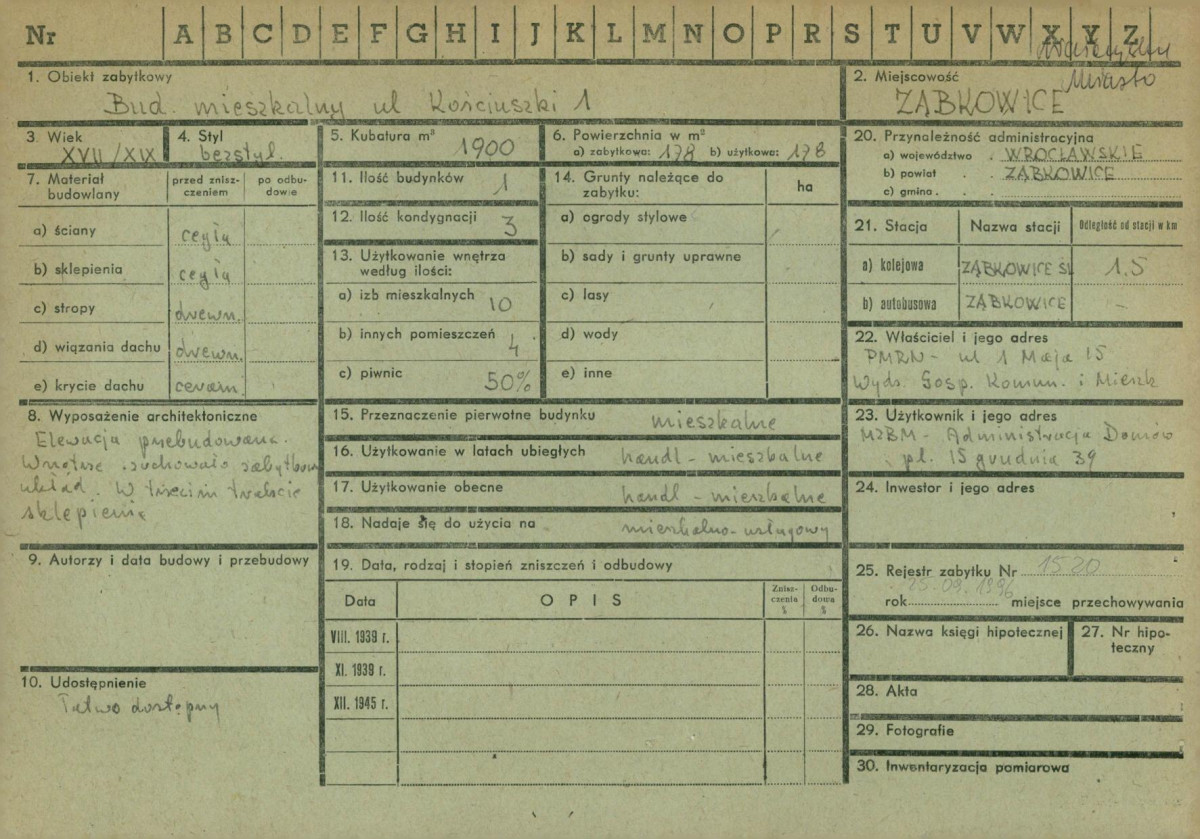 Nr A B C D E F G H I J K L M N O P R S T U V W X Y Z
Miasto
1. Obiekt zabytkowy
Bud. mieszkalny ul Kościuszki 1
2. Miejscowość
ZĄBKOWICE
3. Wiek
XVII/XIX
4. Styl
bezstyl.
5. Kubatura m³
1900
6. Powierzchnia w m²
a) zabytkowa: 178 b) użytkowa: 178
7. Materiał budowlany
przed znisz-
czeniem
po odbu-
dowie
a) ściany cegła
b) sklepienia cegła
c) stropy drewn.
d) wiązania dachu drewn.
e) krycie dachu ceram.
8. Wyposażenie architektoniczne
Elewacja przebudowana.
Wnętrze zachowało zabytkowy
układ. W trzecim trakcie
sklepienia
9. Autorzy i data budowy i przebudowy
10. Udostępnienie
Łatwo dostępny
11. Ilość budynków 1
12. Ilość kondygnacji 3
13. Użytkowanie wnętrza
według ilości:
a) izb mieszkalnych 10
b) innych pomieszczeń 4
c) piwnic 50%
14. Grunty należące do
zabytku:
ha
a) ogrody stylowe
b) sady i grunty uprawne
c) lasy
d) wody
e) inne
15. Przeznaczenie pierwotne budynku mieszkalne
16. Użytkowanie w latach ubiegłych handl - mieszkalne
17. Użytkowanie obecne handl - mieszkalne
18. Nadaje się do użycia na mieszkalno-usługowy
19. Data, rodzaj i stopień zniszczeń i odbudowy
Data
OPIS
Znisz-
czenia
%
Odbu-
dowa
%
VIII. 1939 r.
XI. 1939 r.
XII. 1945 r.
20. Przynależność administracyjna
a) województwo . WROCŁAWSKIE
b) powiat . . ZĄBKOWICE
c) gmina . .
21. Stacja
Nazwa stacji
Odległość od stacji w km
a) kolejowa ZĄBKOWICE ŚL 1.5
b) autobusowa ZĄBKOWICE -
22. Właściciel i jego adres
PMRN - ul 1 Maja 15
Wydz. Gosp. Komun. i Mieszk
23. Użytkownik i jego adres
MZBM - Administracja Domów
pl. 15 grudnia 39
24. Inwestor i jego adres
25. Rejestr zabytku Nr 1520
25.09.1996
rok miejsce przechowywania
26. Nazwa księgi hipotecznej
27. Nr hipo-
teczny
28. Akta
29. Fotografie
30. Inwentaryzacja pomiarowa